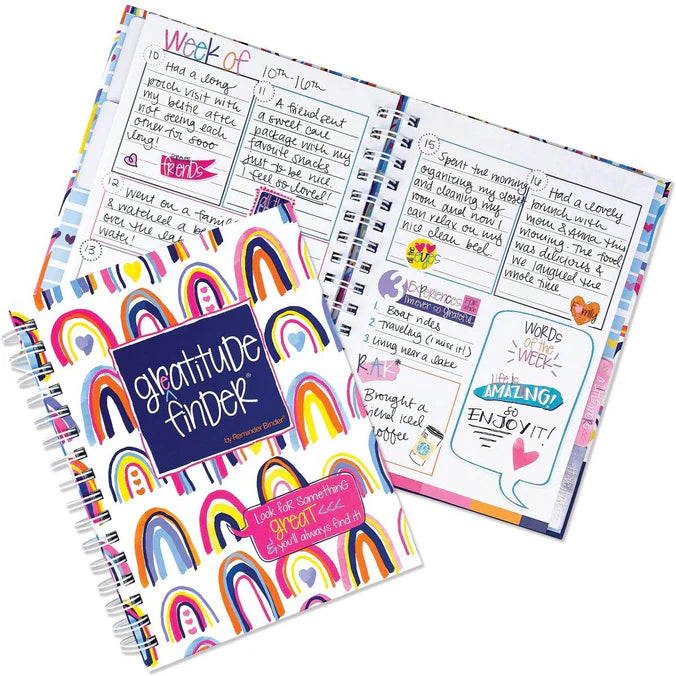 Week of
10th-16th
10
Had a long
porch visit with
my bestie after
not seeing each
other for sooo
long!
friends
11
A friend sent
a sweet care
package with my
favorite snacks
just to be nice
I feel so loved!
12
Went on a
& watched a
over the
water!
13
15
Spent the morning
organizing my closet
and cleaning my
room and now I
can relax on my
nice clean bed.
#yes
16
Had a lovely
brunch with
mom & Anna this
morning. The food
was delicious &
we laughed the
whole time
family
3 Experiences
I'm ever so grateful
1. Boat rides
2. traveling (I miss it!)
3. living near a lake
RAK*
Brought a
friend iced
coffee
WORDS
of the
WEEK
Life is
AMAZING!
so
ENJOY IT!
greatitude
finder®
by Reminder Binder®
Look for something
great <<<
& you'll always find it!